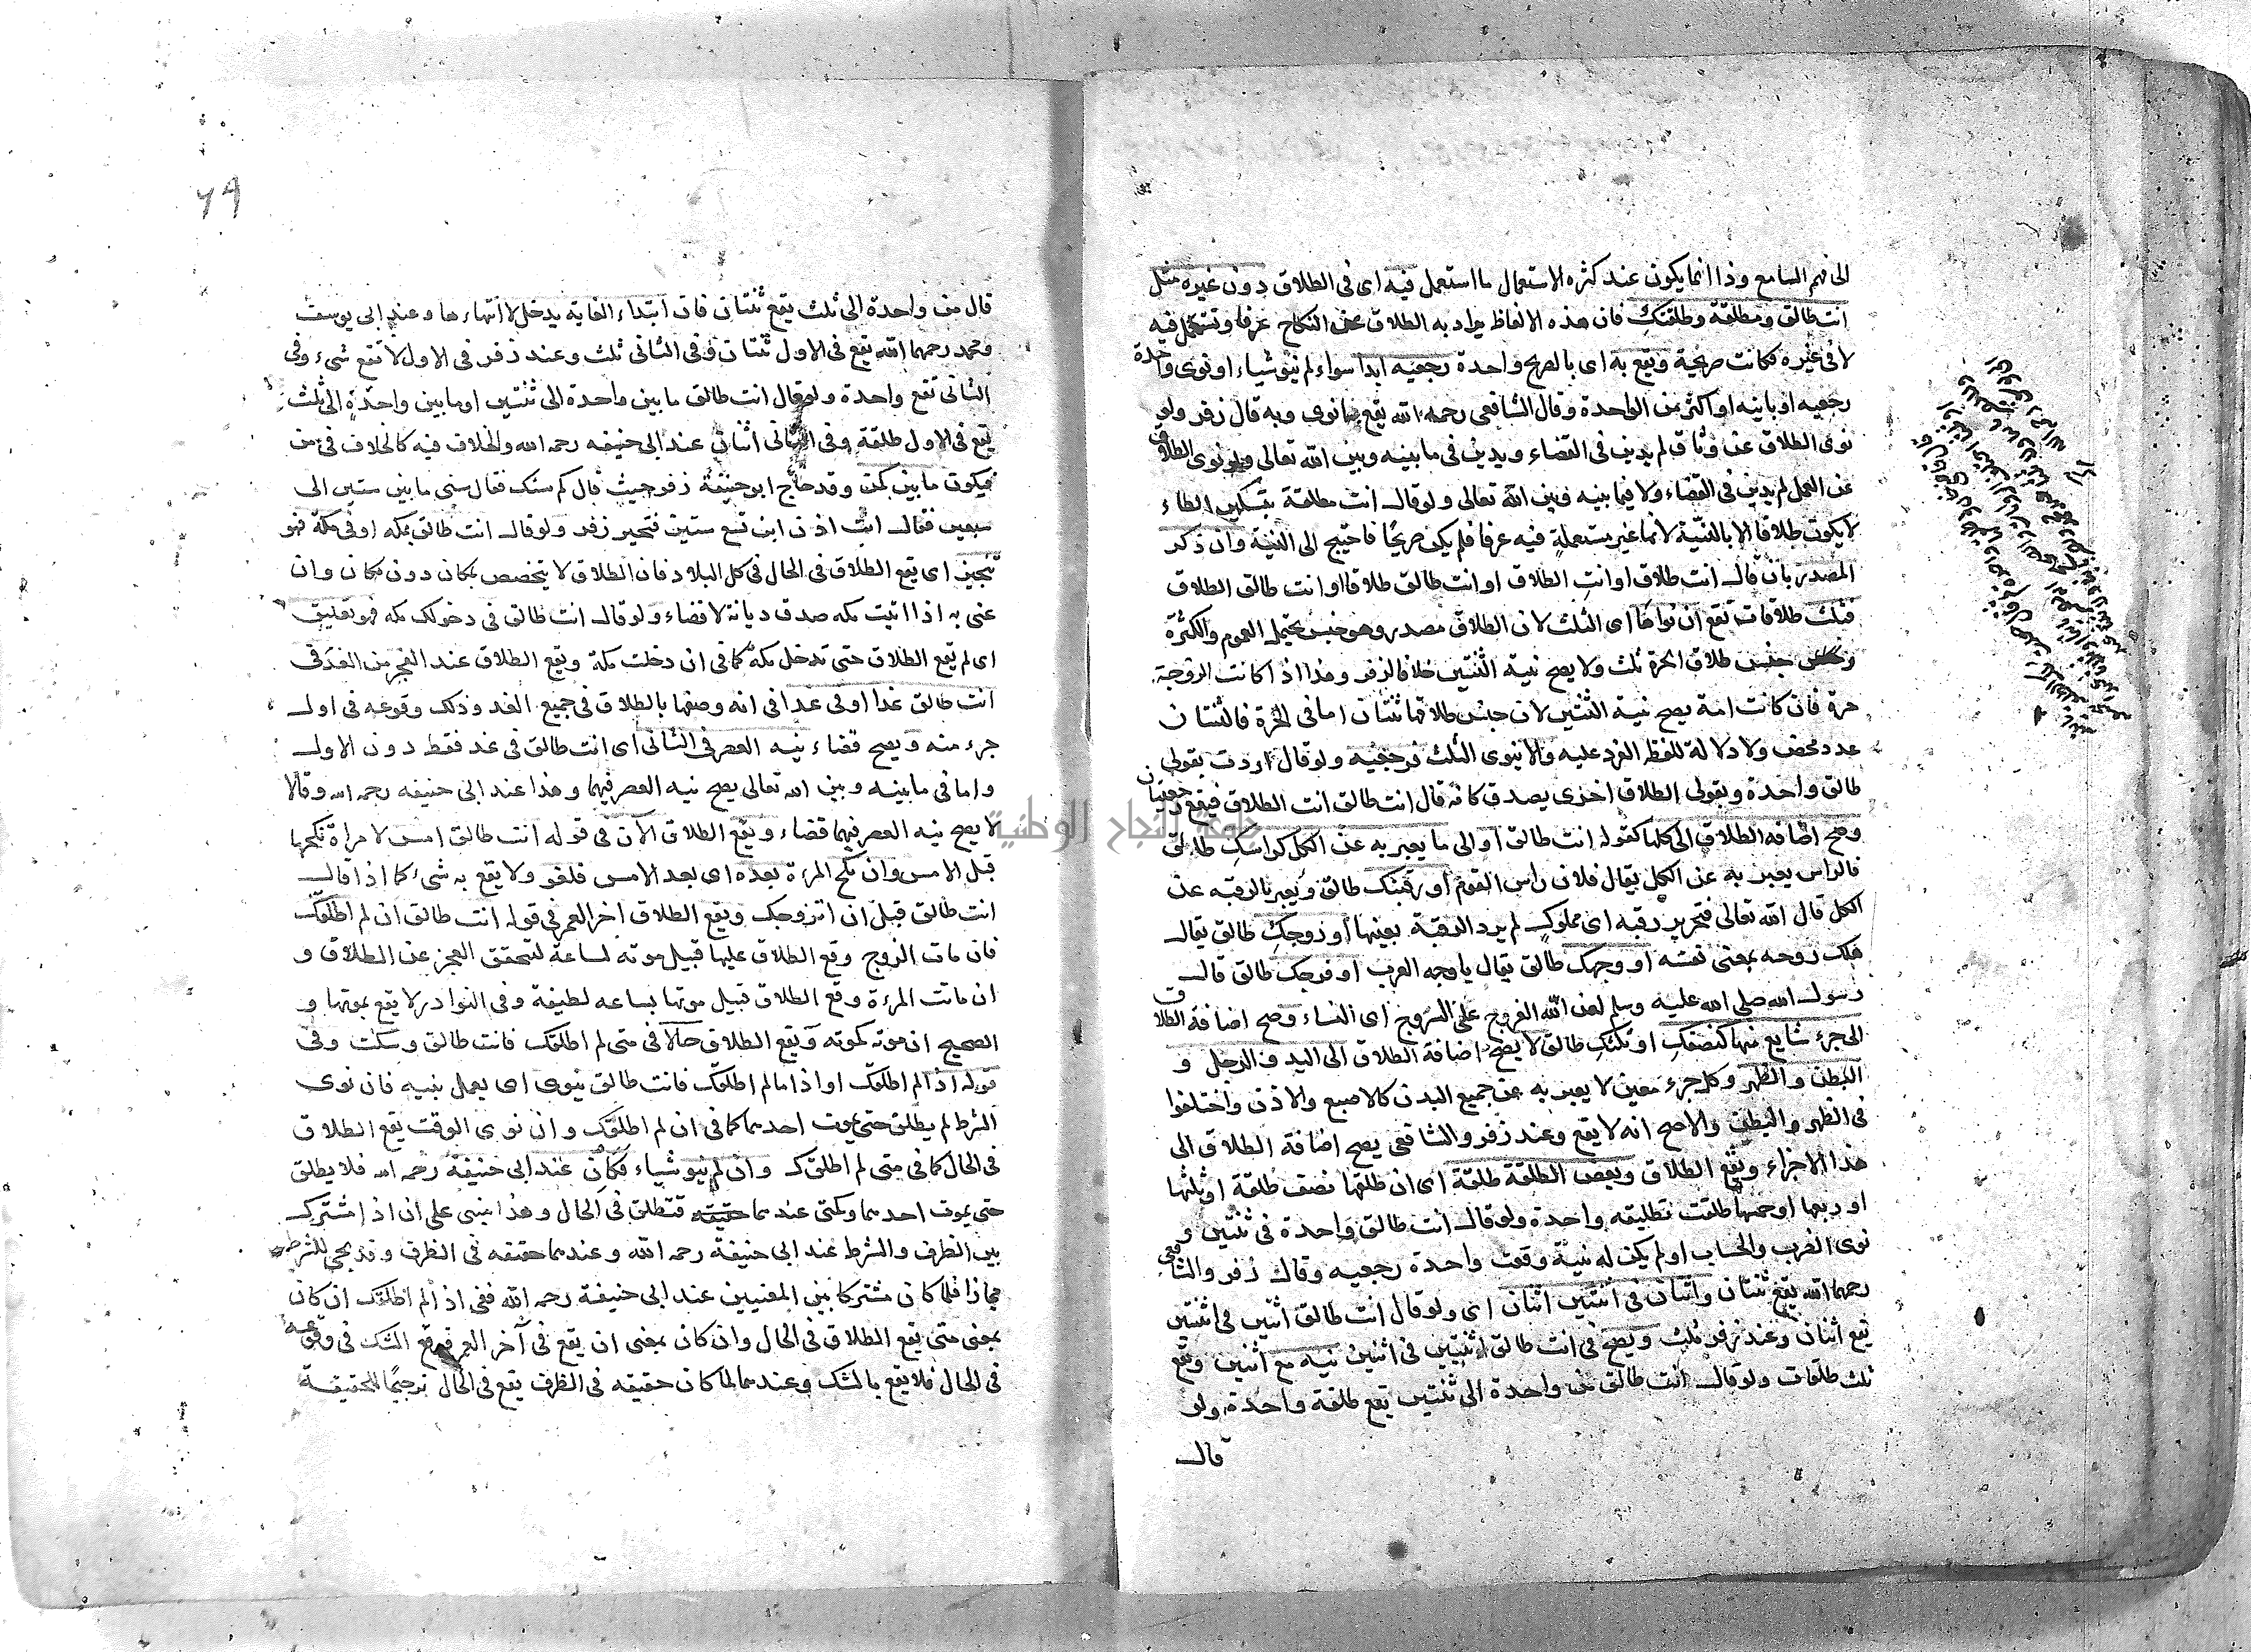 الى فهم السامع وذا انما يكون عند كثره الاستعمال ما استعمل فيه اى فى الطلاق دون غيره مثل
انت طالق ومطلقة وطلقتك فان هذه الالفاظ يراد به الطلاق عن النكاح عرفا وتستعمل فيه
لا فى غيره فكانت صريحة ويقع به اى بالصريح واحدة رجعيه ابدا سواء لم ينو شياء او نوى واحدة
رجعيه او باينه او اكثر من الواحدة وقال الشافعى رحمه الله يقع ما نوى وبه قال زفر ولو
نوى الطلاق عن وثاق لم يدين فى القضاء ويدين فى ما بينه وبين الله تعالى ولو نوى الطلاق
عن العمل لم يدين فى القضاء ولا فيما بينه وبين الله تعالى ولو قال انت مطلقة بتسكين الطاء
لا يكون طلاقا الا بالنية لانها غير مستعملة فيه عرفا فلم يكن صريحًا فاحتيج الى النية وان ذكر
المصدر بان قال انت طلاق او انت الطلاق او انت طالق طلاقا او انت طالق الطلاق
فثلث طلاقات تقع ان نواها اى الثلث لان الطلاق مصدر وهو جنس يحتمل العموم والكثرة
جنس طلاق الحرة ثلث ولا يصح نية الثنتين خلافا لزفر وهذا اذا كانت الزوجة
حرة فان كانت امة يصح نية الثنتين لان جنس طلاقها ثنتان اما فى الحرة فالثنتان
عدد محض ولا دلالة للفظ الفرد عليه والا ينوى الثلث فرجعيه ولو قال اردت بقولى
طالق واحدة وبقولى الطلاق اخرى يصدق كانه قال انت طالق انت الطلاق فيقع رجعيتان
وصح اضافه الطلاق الى كلها كقوله انت طالق او الى ما يعبر به عن الكل كراسك طالق
فالراس يعبر به عن الكل يقال فلان راس القوم او رقبتك طالق ويعبر بالرقبه عن
الكل قال الله تعالى فتحرير رقبه اى مملوك لم يرد الرقبة بعينها او روحك طالق يقال
هلك روحه بمعنى نفسه او وجهك طالق يقال يا وجه العرب او فرجك طالق قال
رسول الله صلى الله عليه وسلم لعن الله الفروج على السروج اى النساء وصح اضافة الطلاق
الى جزء شايع منها كنصفك او ثلثك طالق لا يصح اضافة الطلاق الى اليد والرجل و
البطن والظهر وكل جزء معين لا يعبر به عن جميع البدن كالاصبع والاذن واختلفوا
فى الظهر والبطن والاصح انه لا يقع وعند زفر والشافعى يصح اضافة الطلاق الى
هذا الاجزاء ويقع الطلاق وبعض الطلقة طلقة اى ان طلقها نصف طلقة او ثلثها
او ربعها او خمسها طلقت تطليقه واحدة ولو قال انت طالق واحدة فى ثنتين و
نوى الضرب والحساب او لم يكن له نية وقعت واحدة رجعيه وقال زفر والشافعى
رحمهما الله يقع ثنتان واثنان فى اثنتين اثنان اى ولو قال انت طالق اثنين فى اثنتين
تقع اثنان وعند زفر ثلث ويصح فى انت طالق اثنتين فى اثنين نية مع اثنين وتقع
ثلث طلقات ولو قال انت طالق من واحدة الى ثنتين تقع طلقة واحدة ولو
قال
٦٩
قال من واحدة الى ثلث يقع ثنتان فان ابتداء الغاية يدخل لا انتهاءها وعند ابى يوسف
ومحمد رحمهما الله تقع فى الاول ثنتان وفى الثانى ثلث وعند زفر فى الاول لا تقع شىء وفى
الثانى تقع واحدة ولو قال انت طالق ما بين واحدة الى ثنتين او ما بين واحدة الى ثلث
تقع فى الاول طلقة وفى الثانى اثنان عند ابى حنيفه رحمه الله والخلاف فيه كالخلاف فى من
فيكون ما بين كمن وقد حاج ابو حنيفة زفر حيث قال كم سنك فقال سنى ما بين ستين الى
سبعين فقال انت اذن ابن تسع ستين فتحير زفر ولو قال انت طالق بمكه او فى مكة فهو
تنجيز اى يقع الطلاق فى الحال فى كل البلاد فان الطلاق لا يتخصص بمكان دون مكان وان
عنى به اذا اتيت مكه صدق ديانة لا قضاء ولو قال انت طالق فى دخولك مكه فهو تعليق
اى لم تقع الطلاق حتى تدخل مكة كما فى ان دخلت مكة ويقع الطلاق عند الفجر من الغد فى
انت طالق غدا او فى غد افى انه وصفها بالطلاق فى جميع الغد وذلك وقوعه فى اول
جزء منه ويصح قضاء نيه العصر فى الثانى اى انت طالق فى غد فقط دون الاول
واما فى ما بينه وبين الله تعالى يصح نيه العصر فيهما وهذا عند ابى حنيفه رحمه الله وقالا
لا يصح نيه العصر فيهما قضاء ويقع الطلاق الآن فى قوله انت طالق امس لامراة نكحها
قبل الامس وان نكح المرءة بعده اى بعد الامس فلغو ولا يقع به شىء كما اذا قال
انت طالق قبل ان اتزوجك ويقع الطلاق اخر العمر فى قوله انت طالق ان لم اطلقك
فان مات الزوج وقع الطلاق عليها قبيل موته لساعة لتحقق العجز عن الطلاق و
ان ماتت المرءة وقع الطلاق قبيل موتها بساعه لطيفة وفى النوادر لا يقع بموتها و
الصحيح ان موتها كموته ويقع الطلاق حالا فى متى لم اطلقك فانت طالق وسكت وفى
قوله اذا لم اطلقك او اذا ما لم اطلقك فانت طالق ينوى اى يعمل بنيه فان نوى
الشرط لم يطلق حتى يموت احدهما كما فى ان لم اطلقك وان نوى الوقت يقع الطلاق
فى الحال كما فى متى لم اطلقك وان لم ينو شياء فكان عند ابى حنيفة رحمه الله فلا يطلق
حتى يموت احدهما وكمتى عندهما فتطلق فى الحال وهذا ابنى على ان اذا مشترك
بين الظرف والشرط عند ابى حنيفة رحمه الله وعندهما حقيقه فى الظرف وقد يجىء للشرط
مجازا فلما كان مشتركا بين المعنيين عند ابى حنيفة رحمه الله ففى اذا لم اطلقك ان كان
بمعنى متى يقع الطلاق فى الحال وان كان بمعنى ان يقع فى آخر العمر فوقع الشك فى وقوعه
فى الحال فلا يقع بالشك وعندهما لما كان حقيقه فى الظرف يقع فى الحال ترجيحًا للحقيقة
جامعة النجاح الوطنية